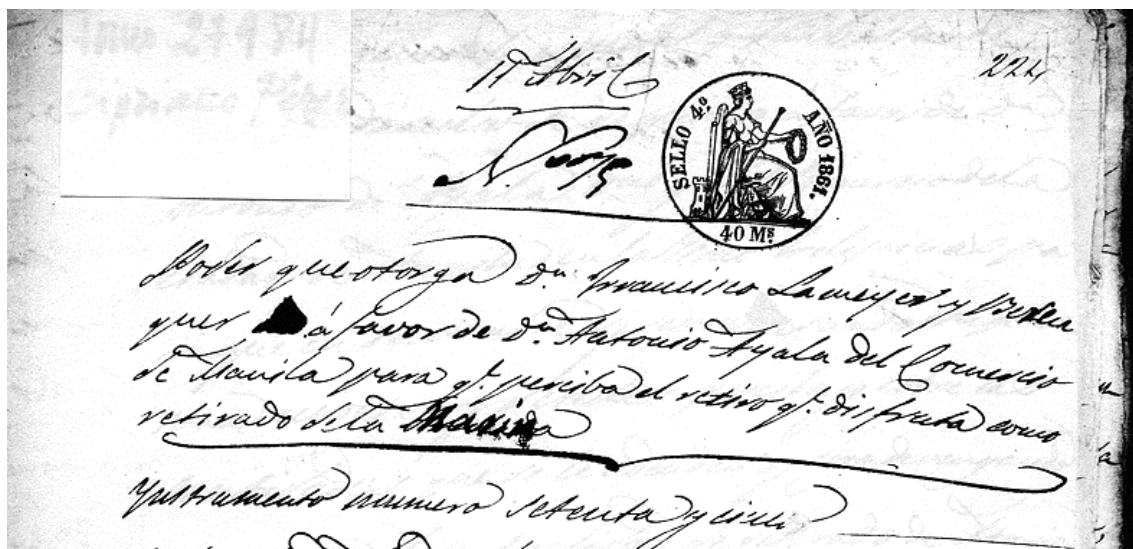 17 Abril
224
SELLO 4º AÑO 1861.
40 Ms
Poder que otorga Dn. Francisco Lameyer y Beren
guer á favor de Dn. Antonio Ayala del Comercio
de Manila para qe. perciba el retiro qe. disfruta como
retirado de la Marina
Ynstrumento numero setenta y cinco